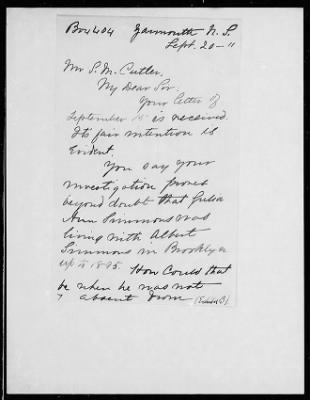 Box 404 Yarmouth N. S.
Sept. 20-11
Mr S. M. Cutler.
My Dear Sir.
Your letter of
September 15 is received.
Its fair intention is
Evident.
You say your
investigation proves
beyond doubt that Julia
Ann Simmons was
living with Albert
Simmons in Brooklyn
up to 1895. How Could that
be when he was not
absent from